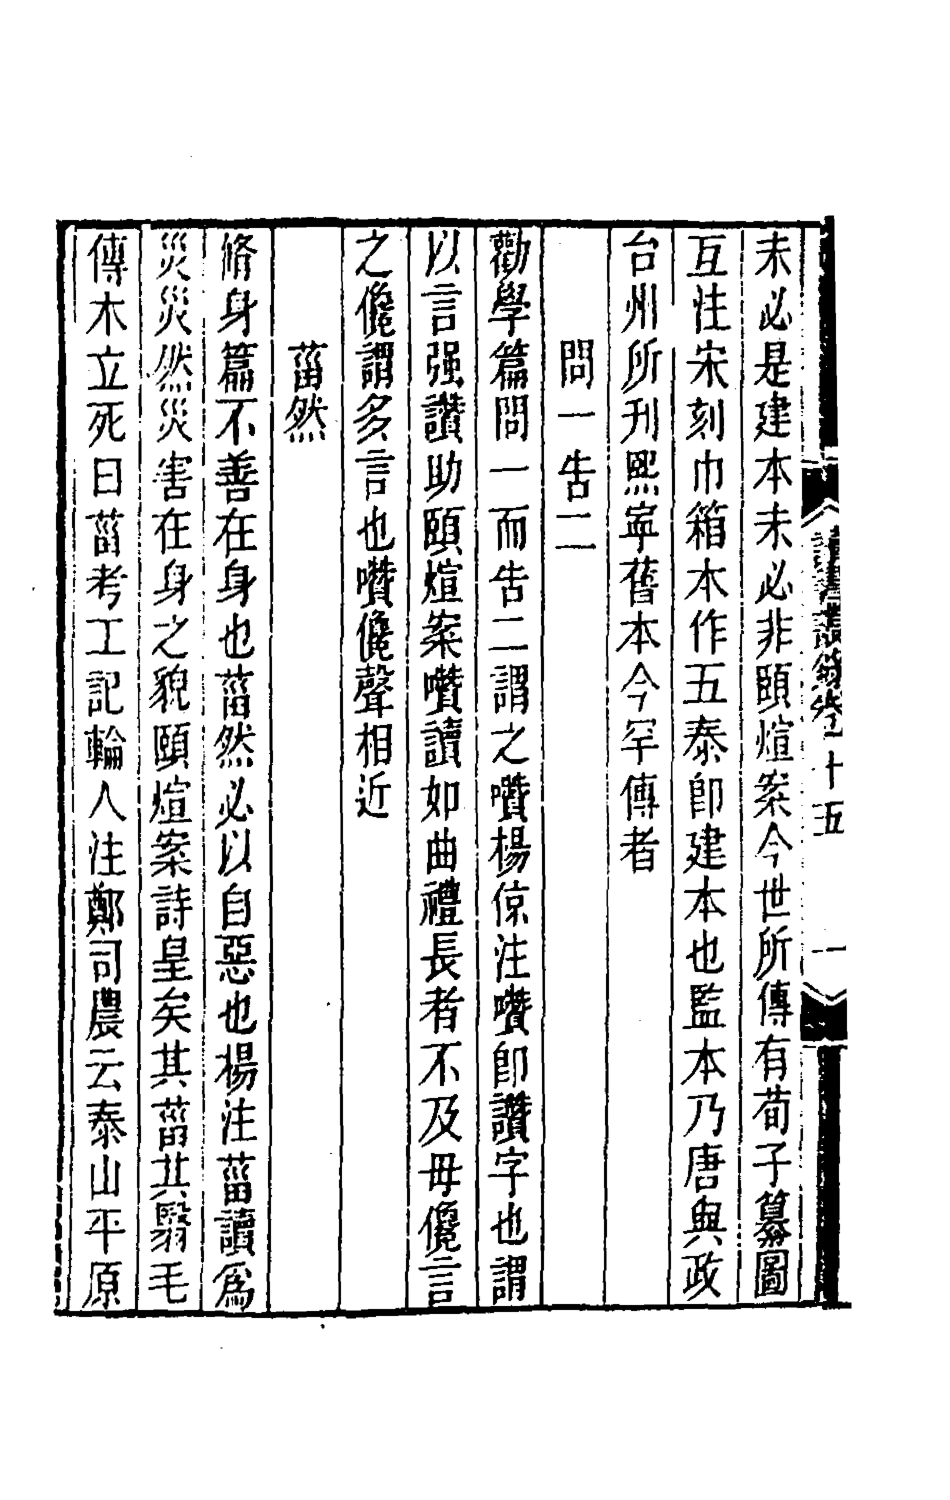 未必是建本未必非頤煊案今世所傳有荀子纂圖
互注宋刻巾箱本作五泰卽建本也監本乃唐與政
台州所刊熙寧舊本今罕傳者
問一告二
勸學篇問一而告二謂之囋楊倞注囋卽讚字也謂
以言强讚助頤煊案囋讀如曲禮長者不及毋儳言
之儳謂多言也囋儳聲相近
菑然
脩身篇不善在身也菑然必以自惡也楊注菑讀爲
災災然災害在身之貌頤煊案詩皇矣其菑其翳毛
傳木立死曰菑考工記輪人注鄭司農云泰山平原
讀書叢錄卷十五
一